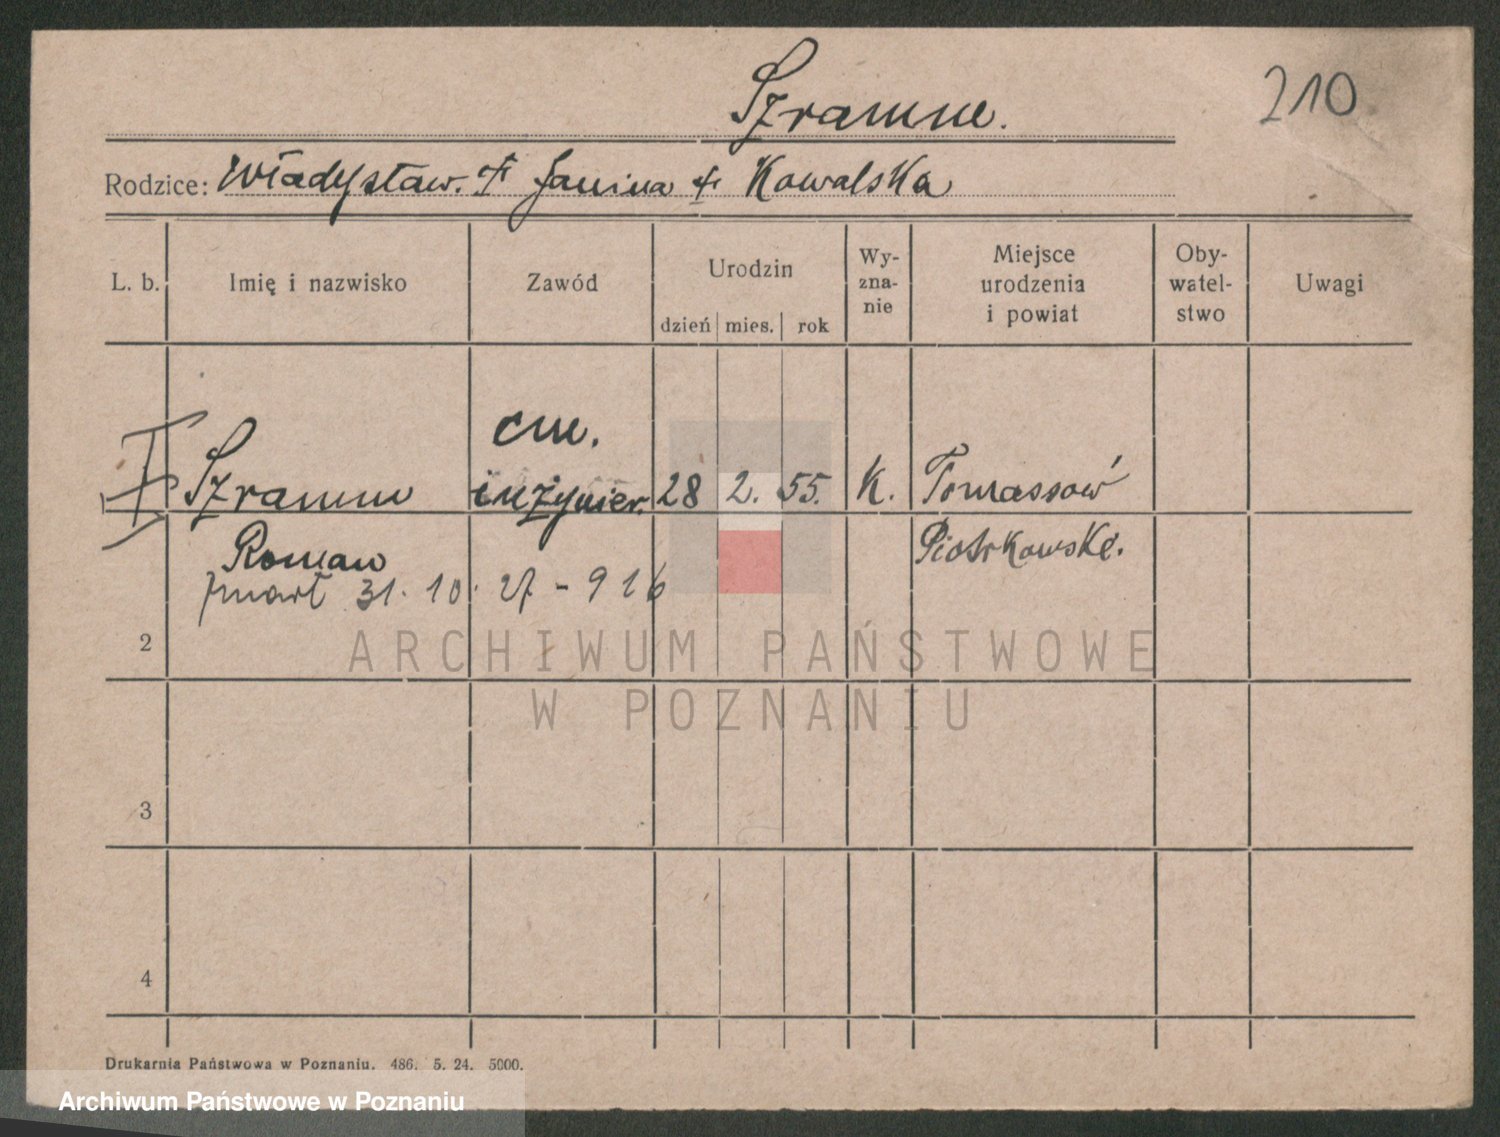 210
Szramm.
Rodzice: Władysław. † Janina † Kowalska
L. b. Imię i nazwisko Zawód Urodzin dzień mies. rok Wy-zna-nie Miejsce urodzenia i powiat Oby-watel-stwo Uwagi
cm.
Szramm inżynier. 28 2. 55. K. Tomassów
Roman Piotrkowski.
zmarł 31. 10. 27 - 916
2
ARCHIWUM PAŃSTWOWE
W POZNANIU
3
4
Drukarnia Państwowa w Poznaniu. 486. 5. 24. 5000.
Archiwum Państwowe w Poznaniu